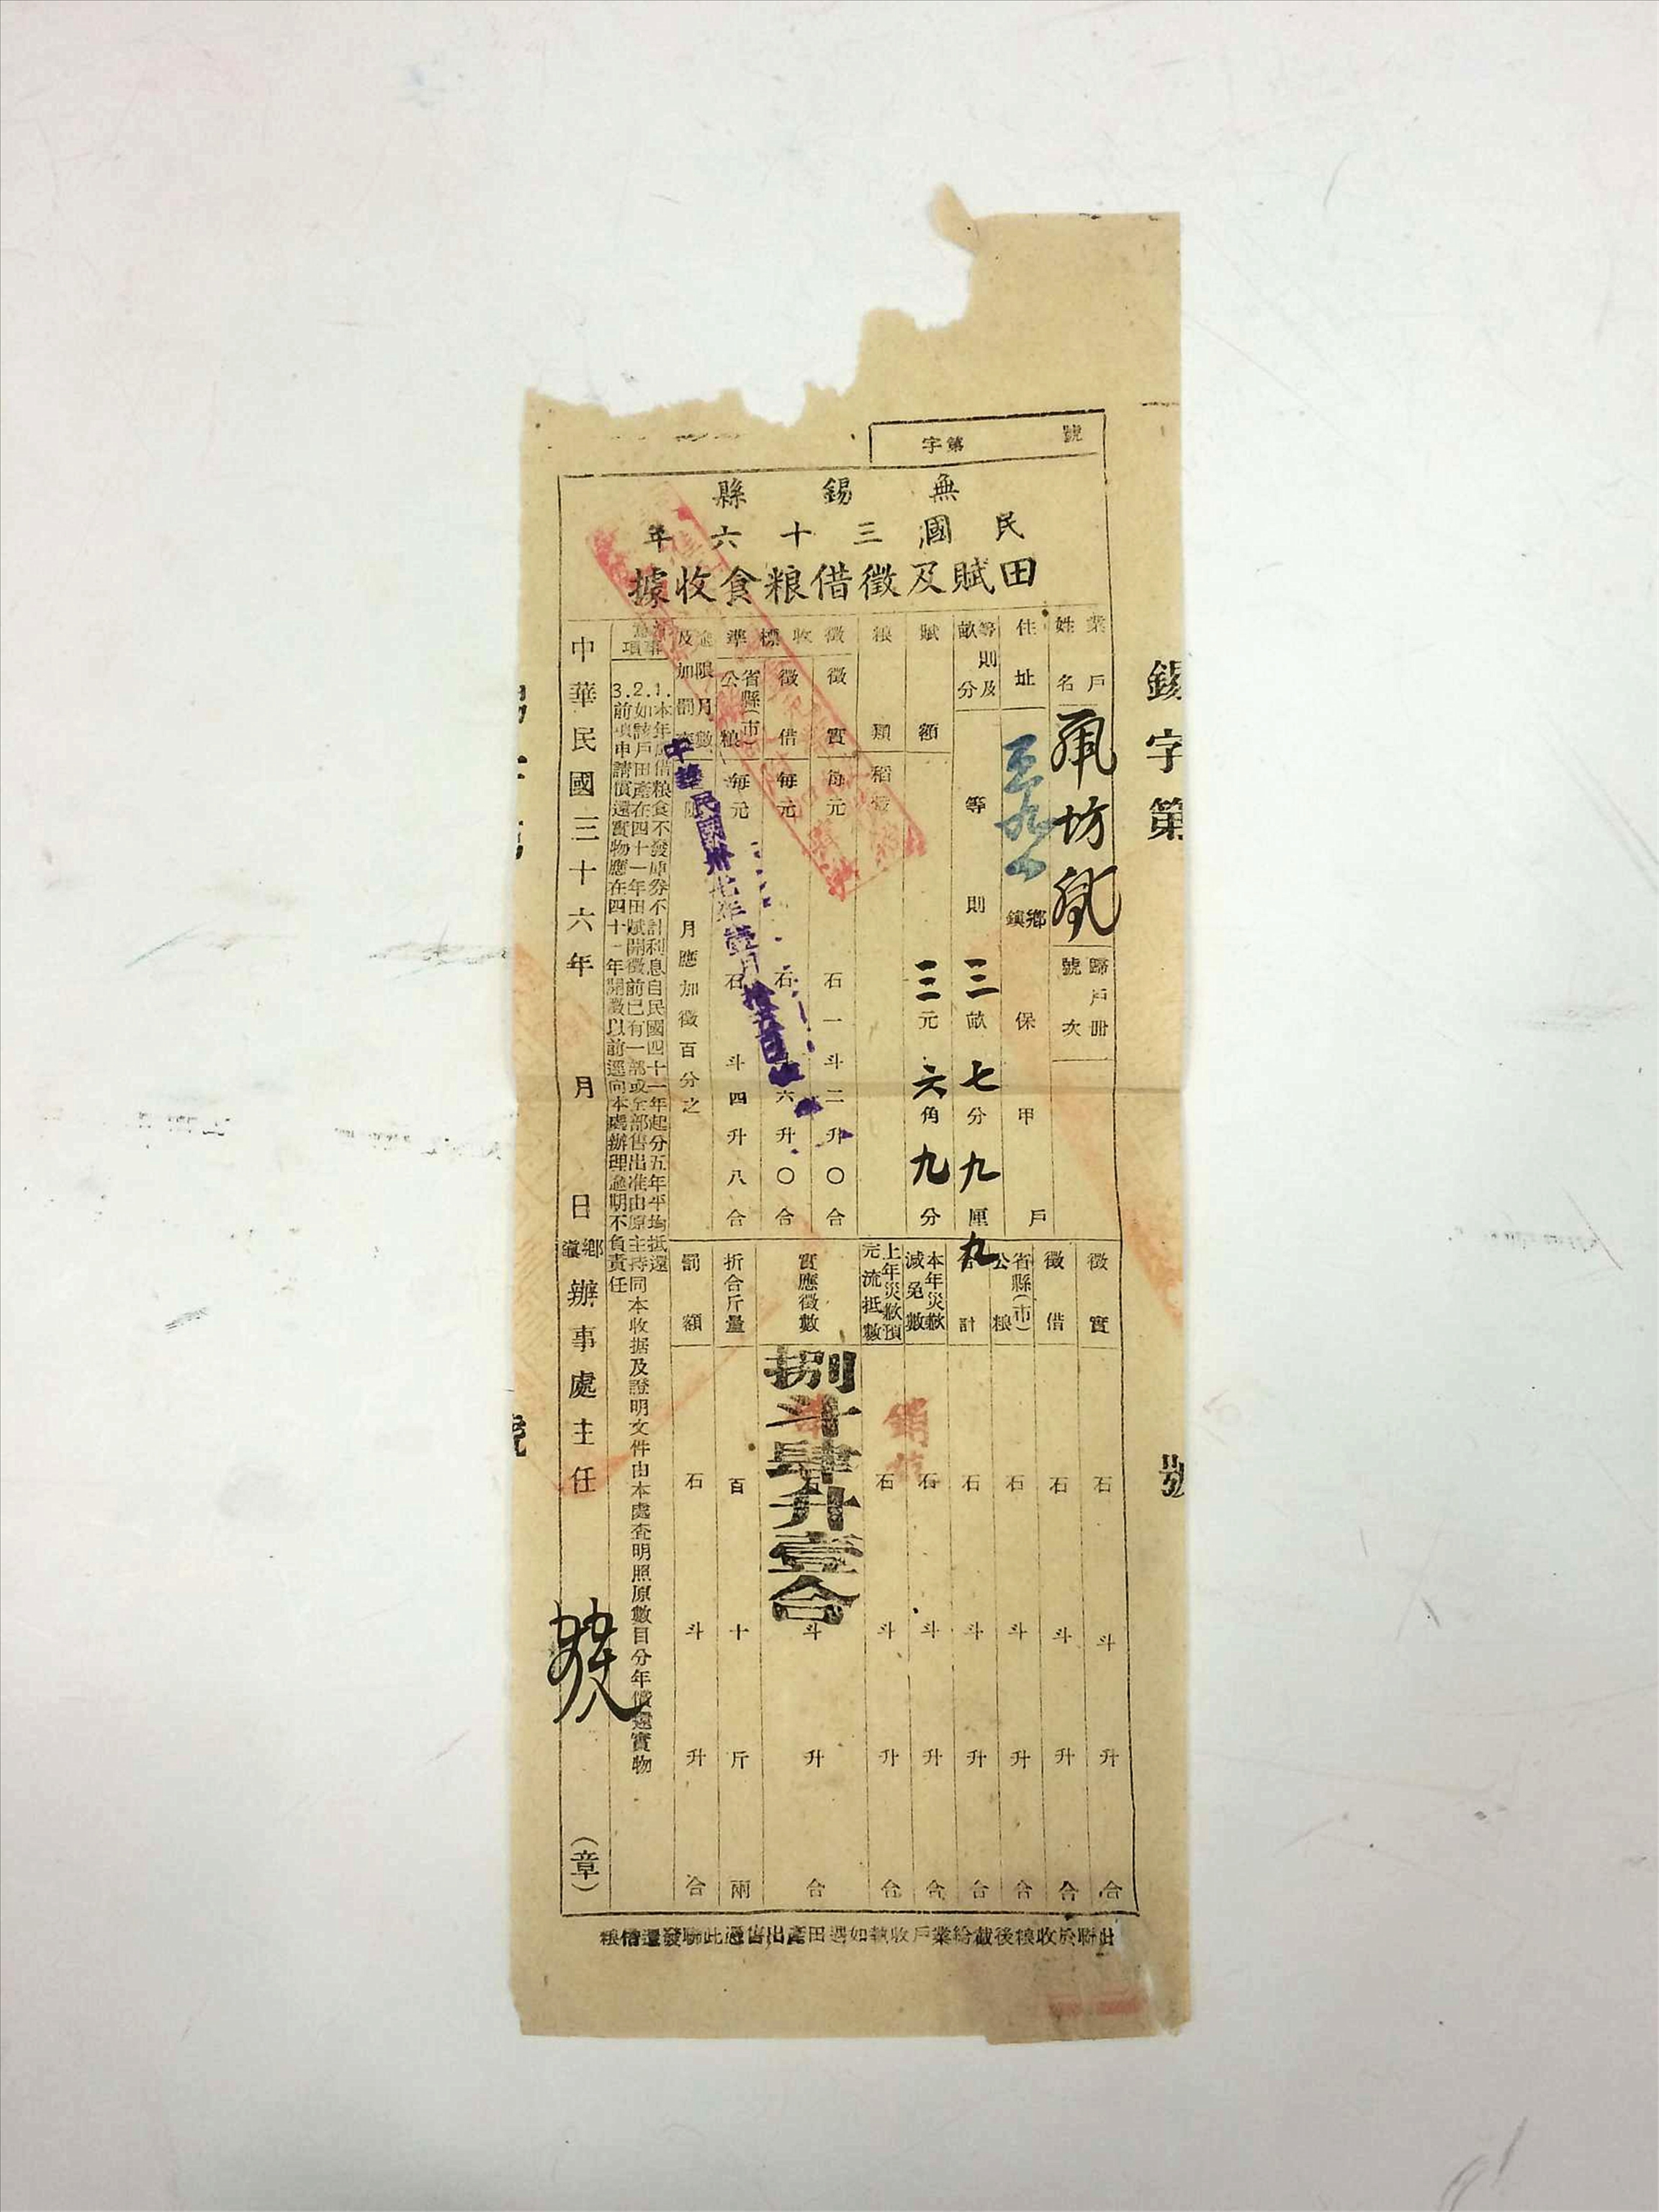 錫字第 號
字第 號
無錫縣
民國三十六年
田賦及徵借粮食收據
業戶姓名
坊
歸戶冊號次
住址
鄉鎮 保 甲 戶
等則及畝分
等 則 三畝七分九厘九
賦額
三元六角九分
粮類
稻
徵收標準
徵實 每元 石一斗二升〇合
徵借 每元 石 斗六升〇合
省縣(市)公粮 每元 石 斗四升八合
逾限月數及加罰
月應加徵百分之
中華民國卅七年壹月拾五日
徵實 石 斗 升 合
徵借 石 斗 升 合
省縣(市)公粮 石 斗 升 合
計 石 斗 升 合
本年災歉減免數 石 斗 升 合
上年災歉預完流抵數 石 斗 升 合
實應徵數 斗 升 合
捌斗肆升壹合
折合斤量 百 十 斤 兩
罰額 石 斗 升 合
注意事項
1.本年徵借粮食不發庫券不計利息自民國四十一年起分五年平均抵還
2.如該戶田產在四十一年田賦開徵前已有一部或全部售出准由原主持同本收据及證明文件由本處查明照原數目分年償還實物
3.前項申請償還實物應在四十一年開徵以前逕向本處辦理逾期不負責任
中華民國三十六年 月 日 鄉鎮辦事處主任 (章)
此聯於收粮後截給業戶收執如遇田產出售憑此聯發還借粮
號